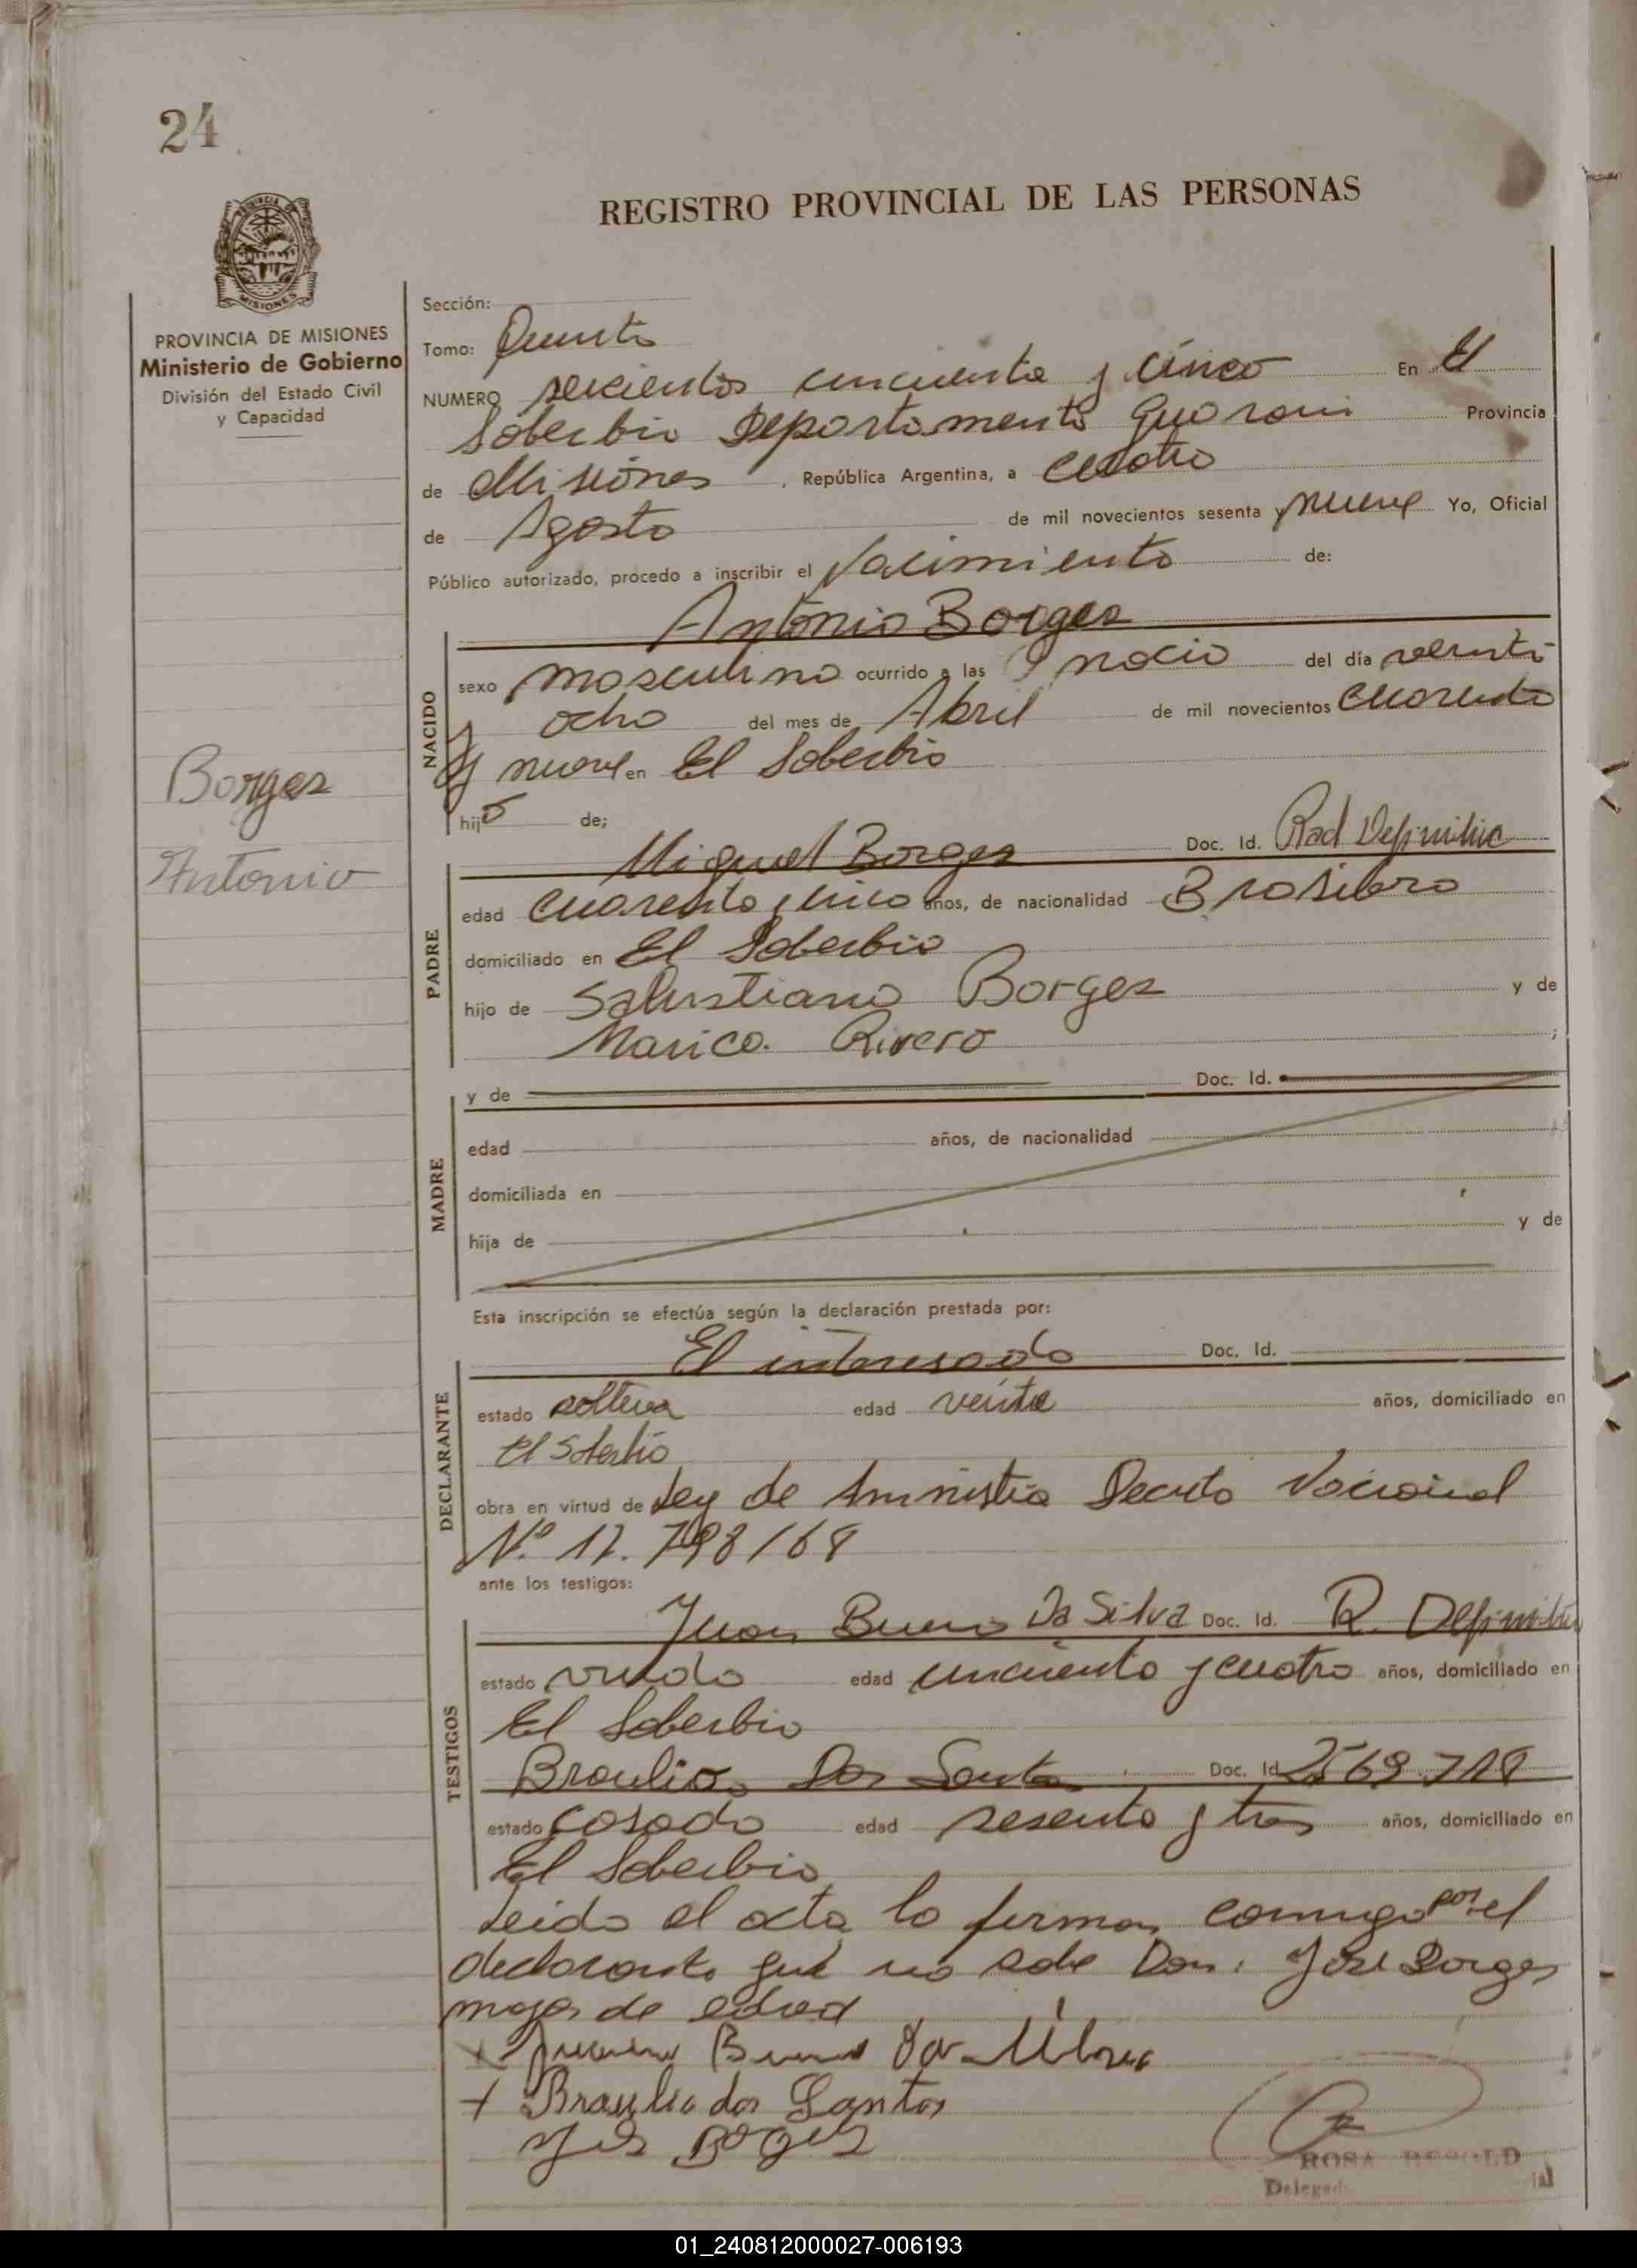 24
REGISTRO PROVINCIAL DE LAS PERSONAS
PROVINCIA DE
MISIONES
PROVINCIA DE MISIONES
Ministerio de Gobierno
División del Estado Civil
y Capacidad
Borges
Antonio
Sección:
Tomo: Quinto
NUMERO seiscientos cincuenta y cinco En El
Soberbio Departamento Guarani Provincia
de Misiones , República Argentina, a cuatro
de Agosto de mil novecientos sesenta y nueve Yo, Oficial
Público autorizado, procedo a inscribir el Nacimiento de:
Antonio Borges
NACIDO
sexo masculino ocurrido a las del día veinti
ocho del mes de Abril de mil novecientos cuarenta
y nueve en El Soberbio
hijo de;
PADRE
Miguel Borges Doc. Id. Rad Definitiva
edad cuarenta y cinco años, de nacionalidad Brasilera
domiciliado en El Soberbio
hijo de Salustiano Borges y de
Marica Rivero ;
MADRE
y de Doc. Id.
edad años, de nacionalidad
domiciliada en
hija de y de
Esta inscripción se efectúa según la declaración prestada por:
DECLARANTE
El interesado Doc. Id.
estado soltero edad veinte años, domiciliado en
El Soberbio
obra en virtud de Ley de Amnistia Decreto Nacional
Nº 17.798/68
ante los testigos:
TESTIGOS
Juan Bueno Da Silva Doc. Id. R. Definitiva
estado viudo edad cincuenta y cuatro años, domiciliado en
El Soberbio
Braulio Dos Santos Doc. Id 2569.718
estado casado edad sesenta y tres años, domiciliado en
El Soberbio
Leida el acta la firman conmigo por el
declarante que no sabe Don: José Borges
mayor de edad
+ Bueno da
+ Braulio dos Santos
ROSA
Delegad